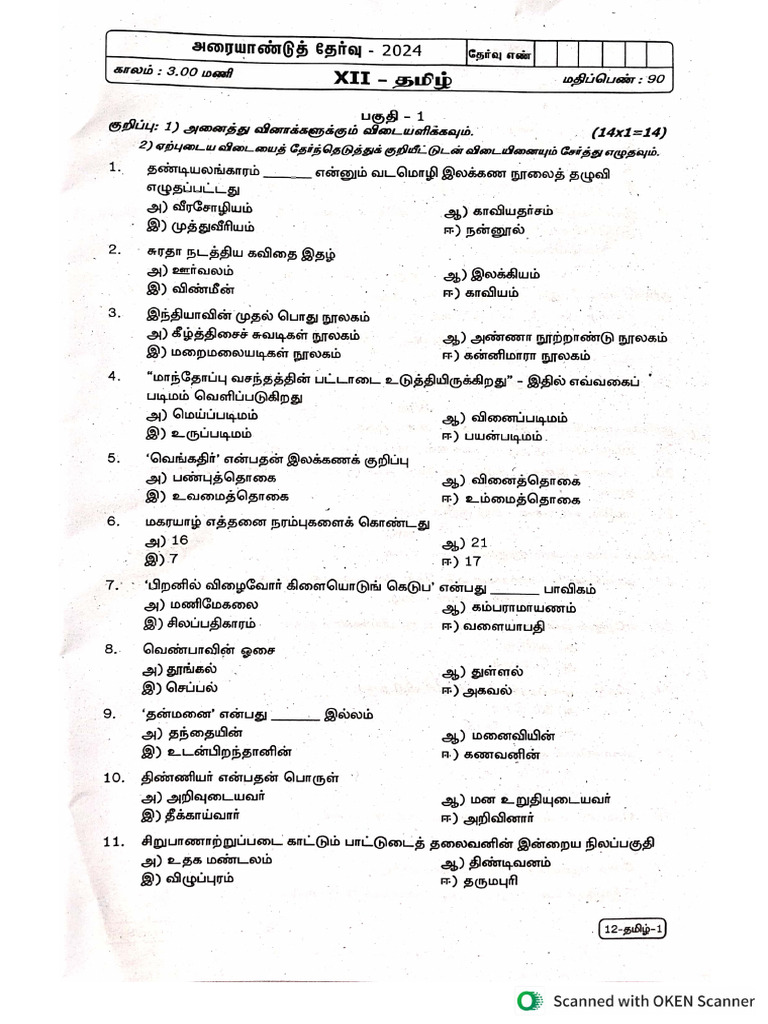 அரையாண்டுத் தேர்வு - 2024 தேர்வு எண்
காலம் : 3.00 மணி XII - தமிழ் மதிப்பெண் : 90
பகுதி - 1
குறிப்பு: 1) அனைத்து வினாக்களுக்கும் விடையளிக்கவும். (14x1=14)
2) ஏற்புடைய விடையைத் தேர்ந்தெடுத்துக் குறியீட்டுடன் விடையினையும் சேர்த்து எழுதவும்.
1. தண்டியலங்காரம் ______ என்னும் வடமொழி இலக்கண நூலைத் தழுவி
எழுதப்பட்டது
அ) வீரசோழியம் ஆ) காவியதர்சம்
இ) முத்துவீரியம் ஈ) நன்னூல்
2. சுரதா நடத்திய கவிதை இதழ்
அ) ஊர்வலம் ஆ) இலக்கியம்
இ) விண்மீன் ஈ) காவியம்
3. இந்தியாவின் முதல் பொது நூலகம்
அ) கீழ்த்திசைச் சுவடிகள் நூலகம் ஆ) அண்ணா நூற்றாண்டு நூலகம்
இ) மறைமலையடிகள் நூலகம் ஈ) கன்னிமாரா நூலகம்
4. “மாந்தோப்பு வசந்தத்தின் பட்டாடை உடுத்தியிருக்கிறது” - இதில் எவ்வகைப்
படிமம் வெளிப்படுகிறது
அ) மெய்ப்படிமம் ஆ) வினைப்படிமம்
இ) உருப்படிமம் ஈ) பயன்படிமம்
5. ‘வெங்கதிர்’ என்பதன் இலக்கணக் குறிப்பு
அ) பண்புத்தொகை ஆ) வினைத்தொகை
இ) உவமைத்தொகை ஈ) உம்மைத்தொகை
6. மகரயாழ் எத்தனை நரம்புகளைக் கொண்டது
அ) 16 ஆ) 21
இ) 7 ஈ) 17
7. ‘பிறனில் விழைவோர் கிளையொடுங் கெடுப’ என்பது ______ பாவிகம்
அ) மணிமேகலை ஆ) கம்பராமாயணம்
இ) சிலப்பதிகாரம் ஈ) வளையாபதி
8. வெண்பாவின் ஓசை
அ) தூங்கல் ஆ) துள்ளல்
இ) செப்பல் ஈ) அகவல்
9. ‘தன்மனை’ என்பது ______ இல்லம்
அ) தந்தையின் ஆ) மனைவியின்
இ) உடன்பிறந்தானின் ஈ) கணவனின்
10. திண்ணியர் என்பதன் பொருள்
அ) அறிவுடையவர் ஆ) மன உறுதியுடையவர்
இ) தீக்காய்வார் ஈ) அறிவினார்
11. சிறுபாணாற்றுப்படை காட்டும் பாட்டுடைத் தலைவனின் இன்றைய நிலப்பகுதி
அ) உதக மண்டலம் ஆ) திண்டிவனம்
இ) விழுப்புரம் ஈ) தருமபுரி
12-தமிழ்-1
Scanned with OKEN Scanner